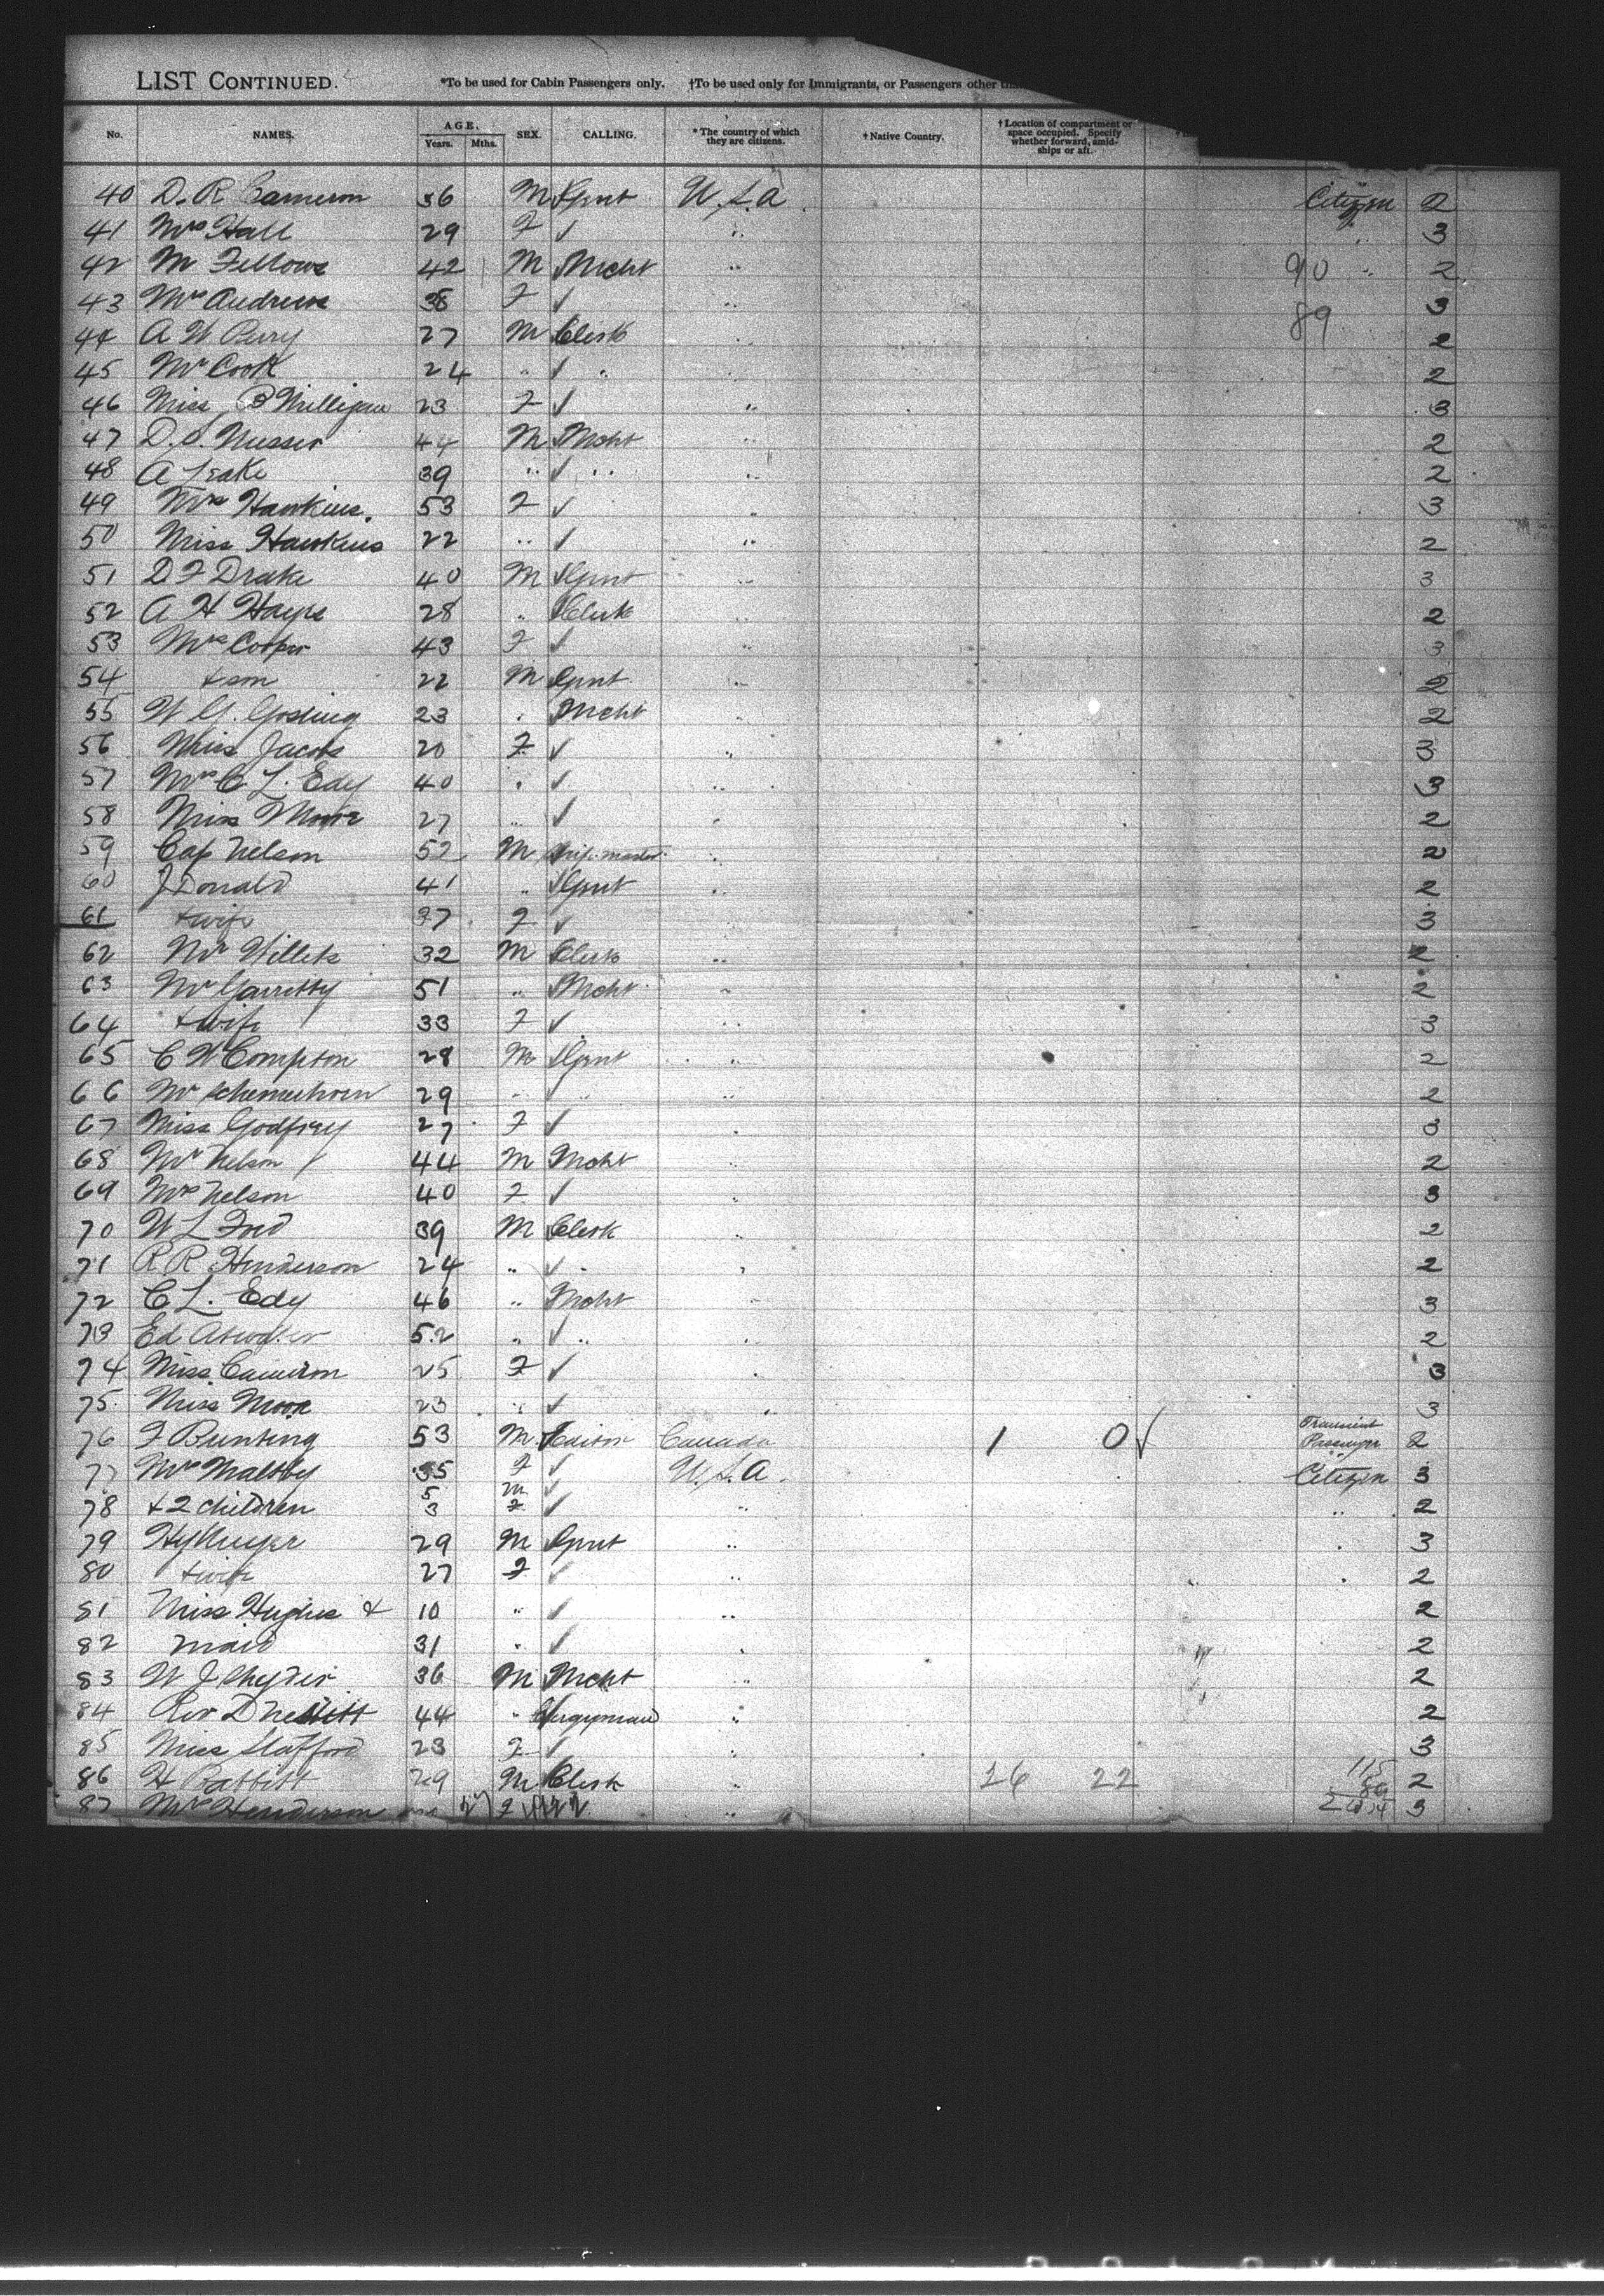 LIST CONTINUED. *To be used for Cabin Passengers only. †To be used only for Immigrants, or Passengers other
No. NAMES. AGE. Years. Mths. SEX. CALLING. * The country of which they are citizens. † Native Country. † Location of compartment or space occupied. Specify whether forward, amidships or aft.
40 D. R Cameron 56 M Gent U.S.A Citizen 2
41 Mrs Hall 29 F ✓ " " 3
42 M Fellows 42 M Mcht " 90 " 2
43 Mrs Andrews 38 F ✓ " 89 3
44 A W Perry 27 M Clerk " 2
45 Mr Cook 24 " ✓ " " 2
46 Miss B Milligan 23 F ✓ " 3
47 D. S. Musser 44 M Mcht " 2
48 A Leake 39 " ✓ " " 2
49 Mrs Hawkins. 53 F ✓ " 3
50 Miss Hawkins 22 " ✓ " 2
51 D F Drake 40 M Gent " 3
52 A H Hayes 28 " Clerk " 2
53 Mrs Cooper 43 F ✓ " 3
54 + son 22 M Gent " 2
55 W G. Gosling 23 " Mcht 2
56 Miss Jacobs 20 F ✓ " 3
57 Mrs C L. Edy 40 " ✓ " 3
58 Miss Moore 27 " ✓ " 2
59 Cap Nelson 52 M Ship-master " 2
60 J Donald 41 " Gent " 2
61 + wife 37 F ✓ 3
62 Mr Willets 32 M Clerk " 2
63 Mr Garretty 51 " Mcht " 2
64 + wife 33 F ✓ " 3
65 C W Compton 28 M Gent " 2
66 Mr Schemerhorn 29 " ✓ " " 2
67 Miss Godfrey 27 F ✓ 3
68 Mr Nelson 44 M Mcht " 2
69 Mrs Nelson 40 F ✓ " 3
70 W L Ford 39 M Clerk " 2
71 R R Henderson 24 " ✓ " " 2
72 C L. Edy 46 " Mcht " 3
73 Ed Atwater 52 " ✓ " " 2
74 Miss Cameron 25 F ✓ " 3
75 Miss Moore 23 " ✓ " 3
76 F Bunting 53 M Editor Canada 1 0 ✓ Transient Passenger 2
77 Mrs Maltby 35 F ✓ U.S.A. Citizen 3
78 + 2 children 5 3 M F ✓ ✓ " " 2
79 Hy Meyer 29 M Gent " " 3
80 + wife 27 F ✓ " " 2
81 Miss Hughes + 10 " ✓ " 2
82 maid 31 " ✓ " 2
83 W J Snyder 36 M Mcht " 2
84 Rev D Nesbitt 44 " Clergyman " 2
85 Miss Stafford 23 F ✓ " 3
86 H Babbitt 29 M Clerk " 26 22 115 89 2
87 Mrs Henderson F 204 3